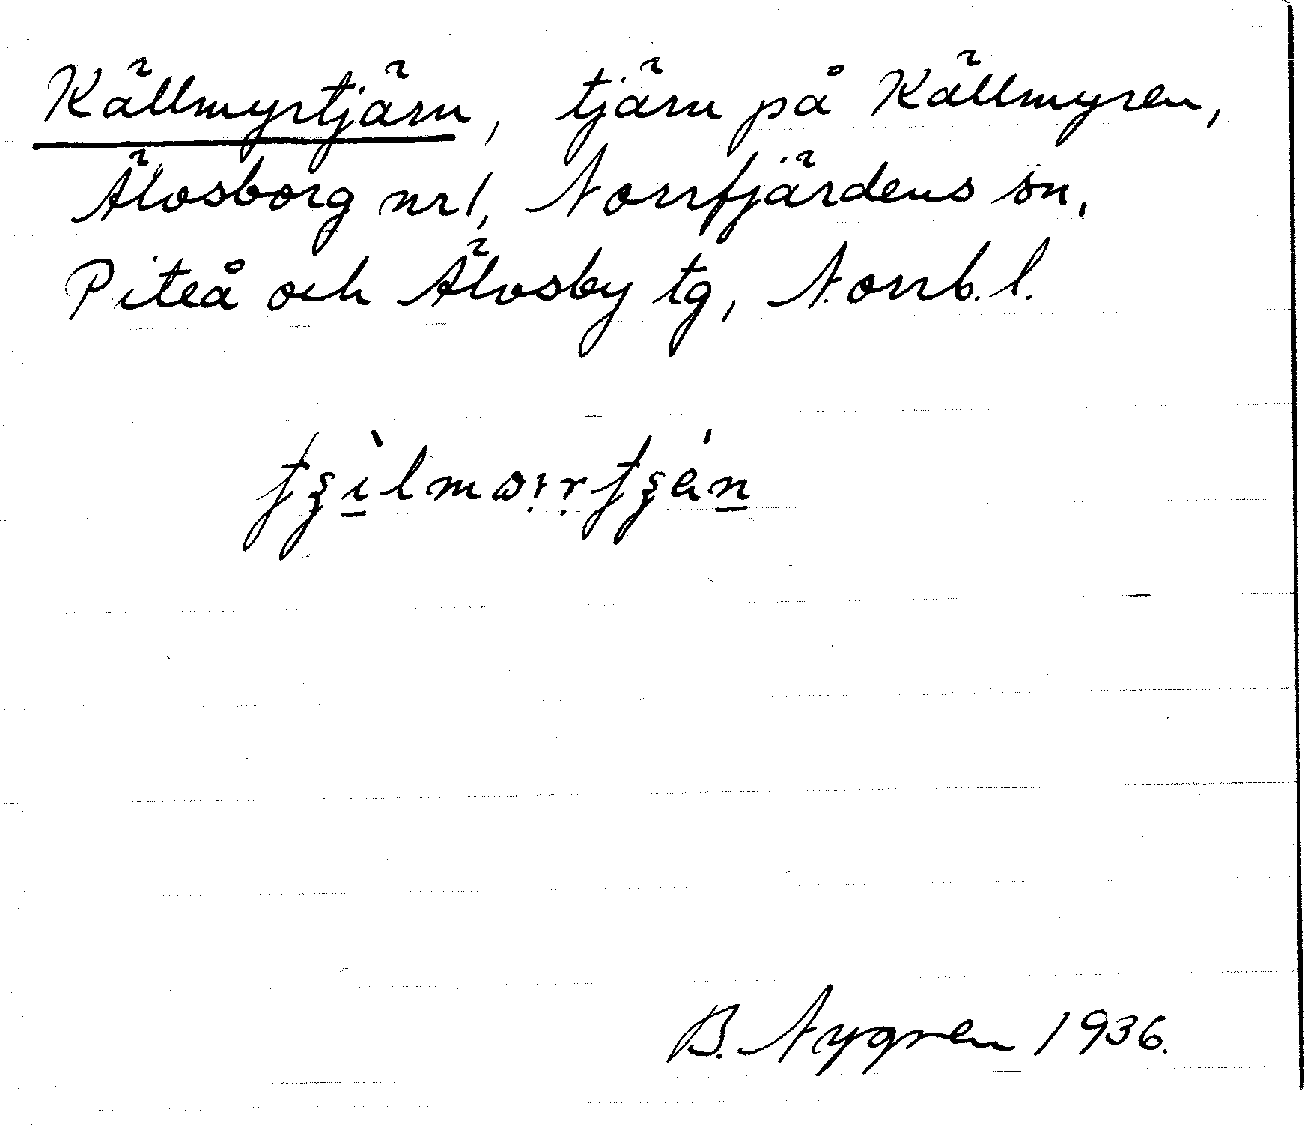 Källmyrtjärn, tjärn på Källmyren,
Älvsborg nr1, Norrfjärdens sn,
Piteå och Älvsby tg, Norrb. l.
B. Nygren 1936.